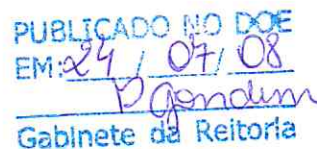 PUBLICADO NO DOE
EM: 24 / 07 / 08
P Gondim
Gabinete da Reitoria